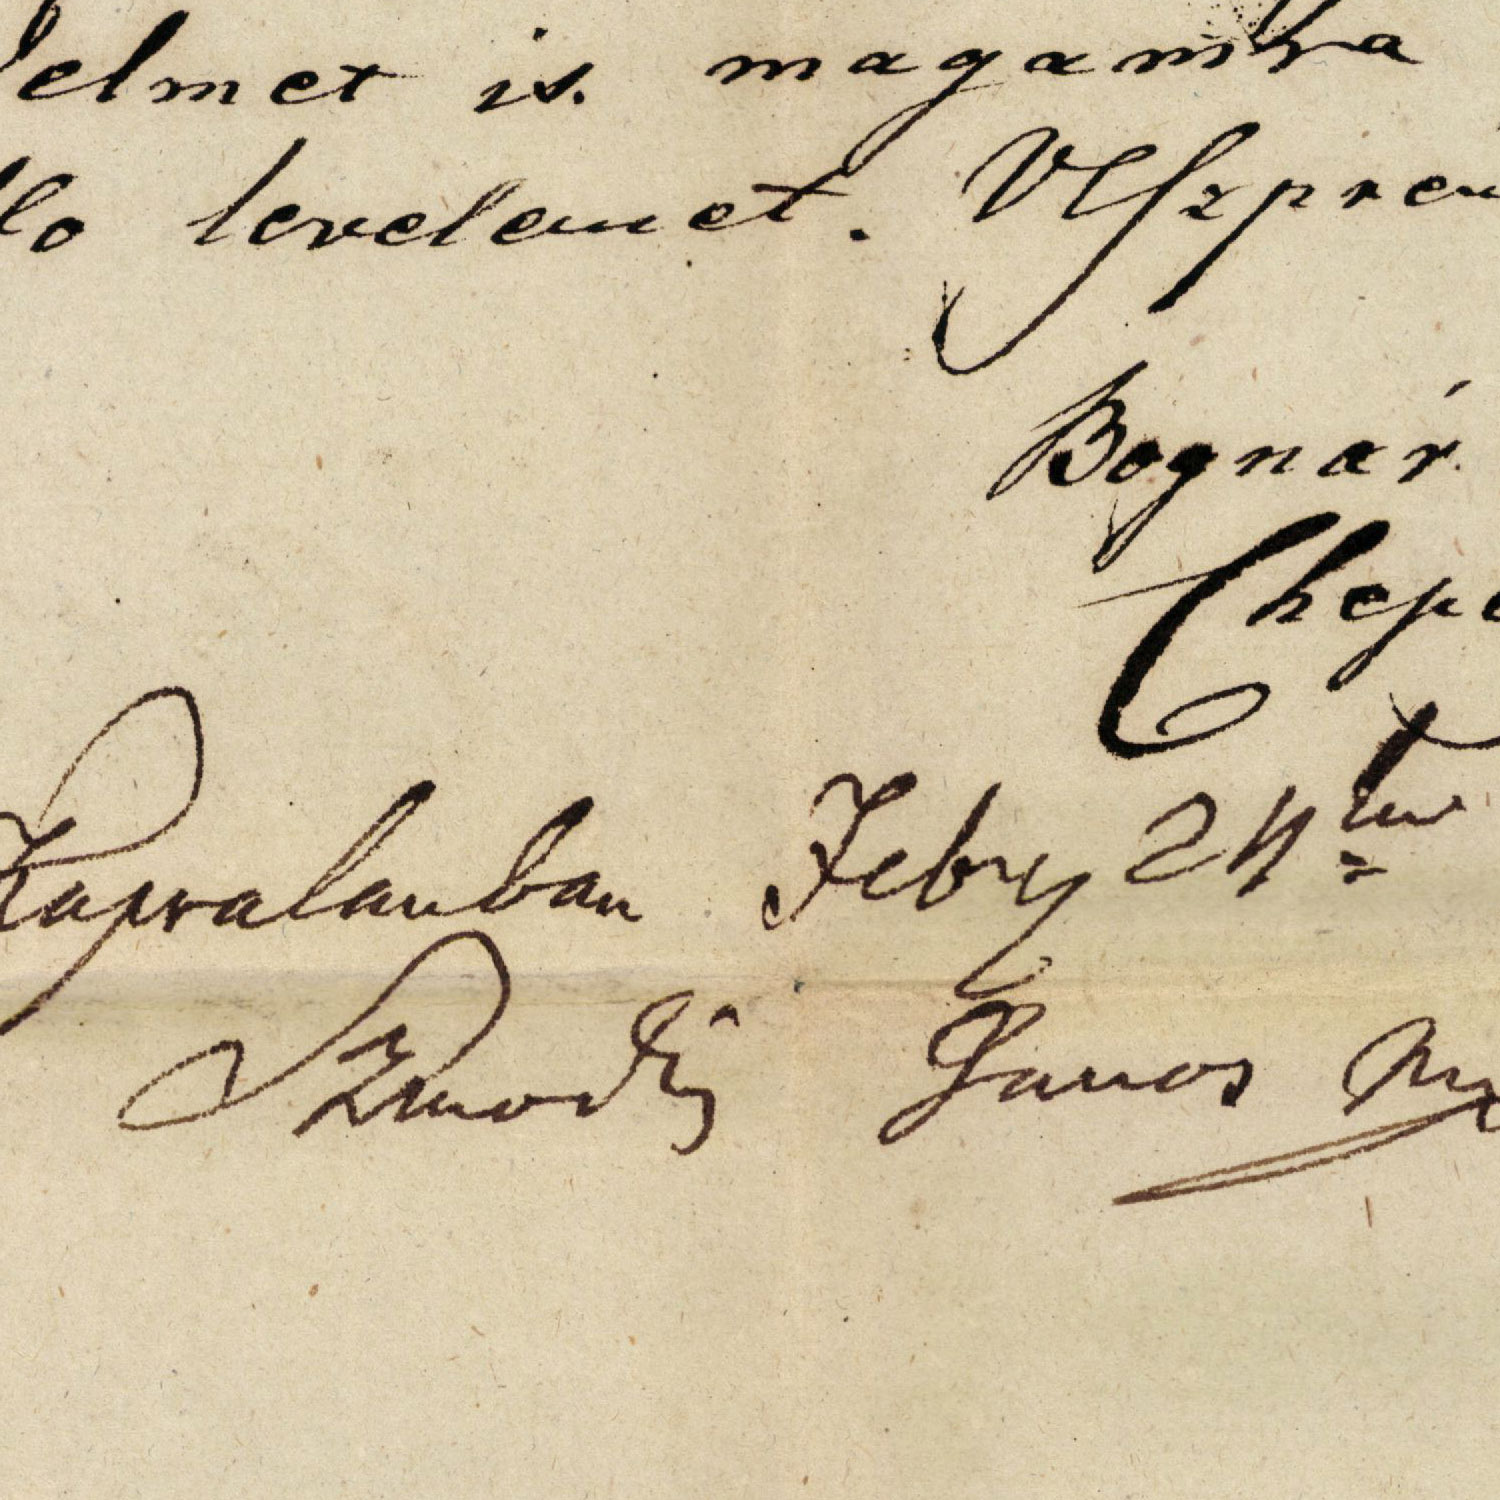 elmet is. magamra
llo levelemet. Veszprem
Bognár
Chepe
Kapralanban Febr 24
Szmodis Janos